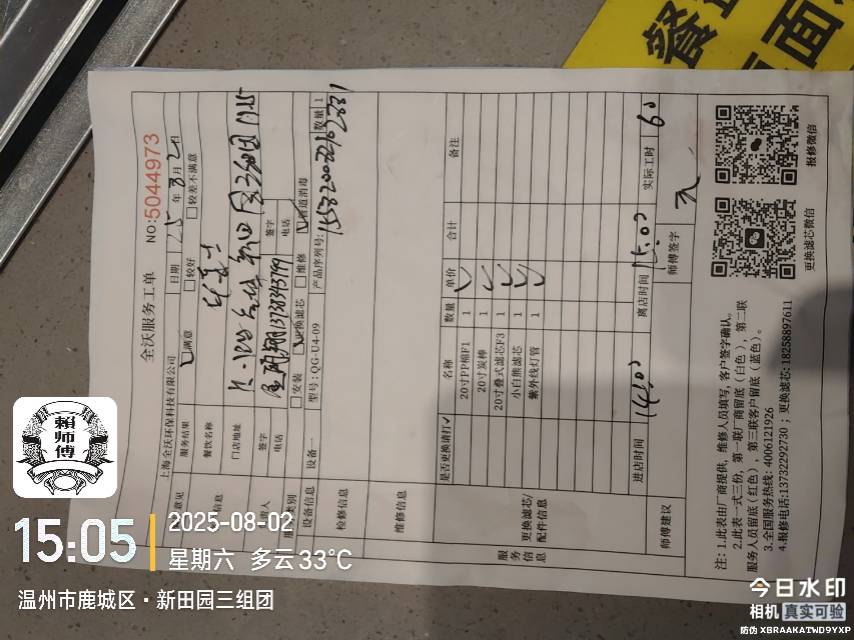 餐
面
全沃服务工单
NO:5044973
上海全沃环保科技有限公司
日期 25 年 8 月 2 日
服务结果
满意
较好
较差不满意
餐饮名称
门店地址
签字
电话 13738343799
签字
电话
服务类别
安装
更换滤芯
维修
管道消毒
设备信息
设备一
型号:QG-U4-09
产品序列号:
数量 1
检修信息
维修信息
服务信息
更换滤芯/配件信息
是否更换请打✓
名称
数量
单价
合计
备注
20寸PP棉F1 1 ✓
20寸炭棒 1 ✓
20寸叠式滤芯F3 1 ✓
小白熊滤芯 1 ✓
紫外线灯管 1
进店时间 14:00
离店时间 15:00
实际工时 60
师傅建议
师傅签字
注:1.此表由厂商提供,维修人员填写,客户签字确认。
2.此表一式三份,第一联厂商留底(白色),第二联
服务人员留底(红色),第三联客户留底(蓝色)。
3.全国服务热线:4006121926
4.报修电话:13732292730;更换滤芯:18258897611
更换滤芯微信
报修微信
賴
师
傅
15:05
2025-08-02
星期六 多云 33°C
温州市鹿城区·新田园三组团
今日水印
相机 真实可验
防伪 XBRAAKATWD9YXP